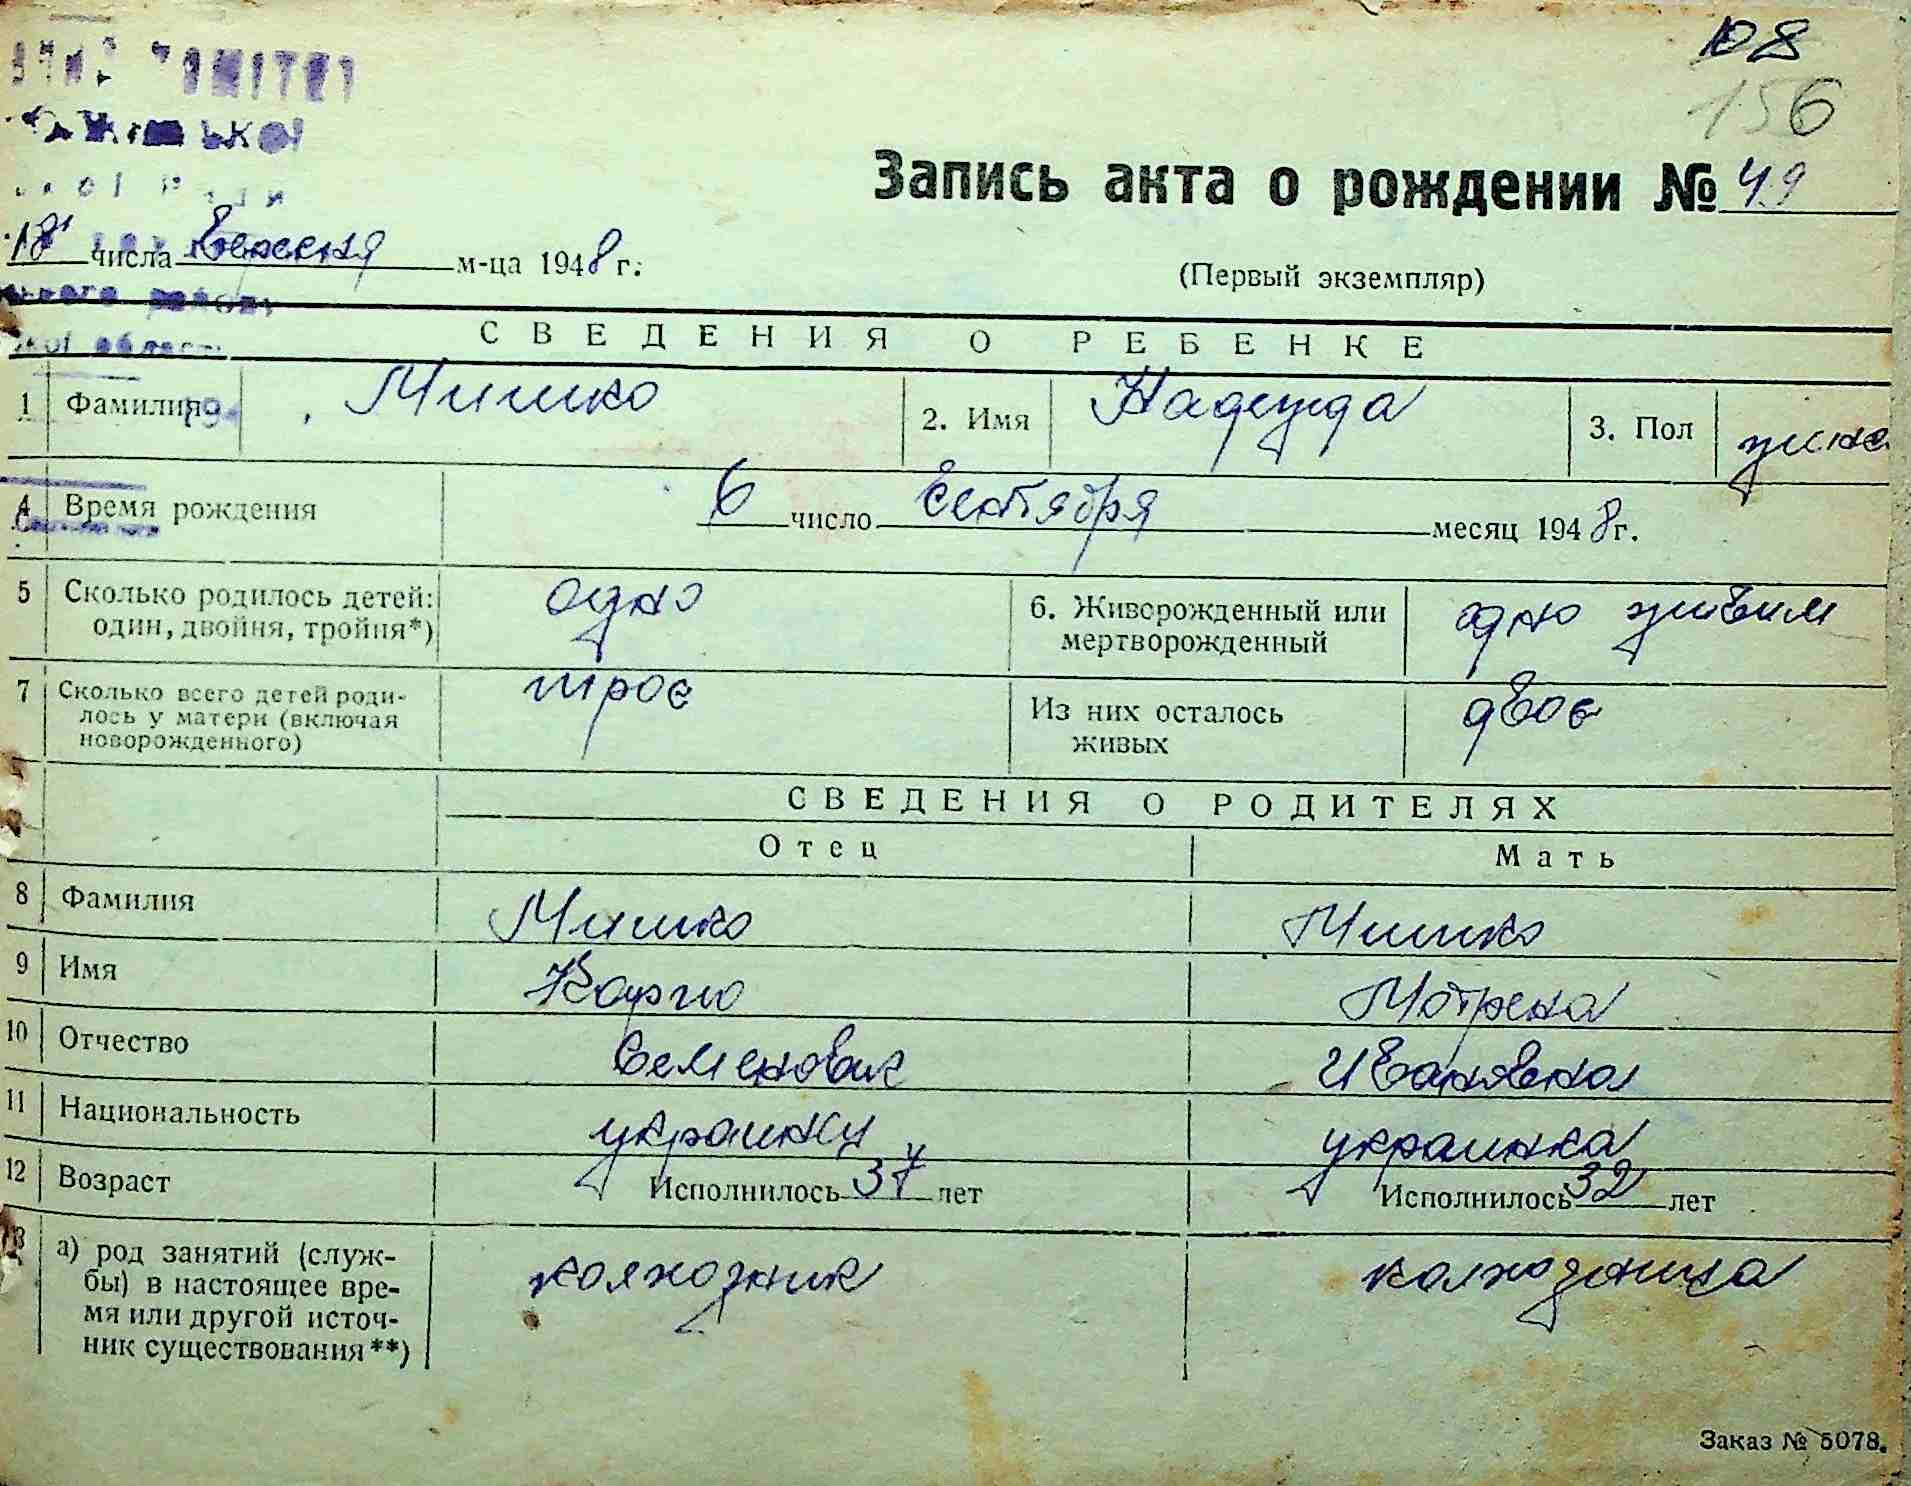 108
156
Запись акта о рождении № 49
18 числа вересня м-ца 1948 г.
(Первый экземпляр)
СВЕДЕНИЯ О РЕБЕНКЕ
1 Фамилия Мишко 2. Имя Надежда 3. Пол жіноч
4 Время рождения 6 число Сентября месяц 1948 г.
5 Сколько родилось детей: один, двойня, тройня*) одно 6. Живорожденный или мертворожденный одно живим
7 Сколько всего детей родилось у матери (включая новорожденного) троє Из них осталось живых двоє
СВЕДЕНИЯ О РОДИТЕЛЯХ
Отец Мать
8 Фамилия Мишко Мишко
9 Имя Мотрена
10 Отчество Семенович Ивановна
11 Национальность украинец украинка
12 Возраст Исполнилось 37 лет Исполнилось 32 лет
13 а) род занятий (служ-
бы) в настоящее вре-
мя или другой источ-
ник существования**) колхозник колхозница
Заказ № 5078.